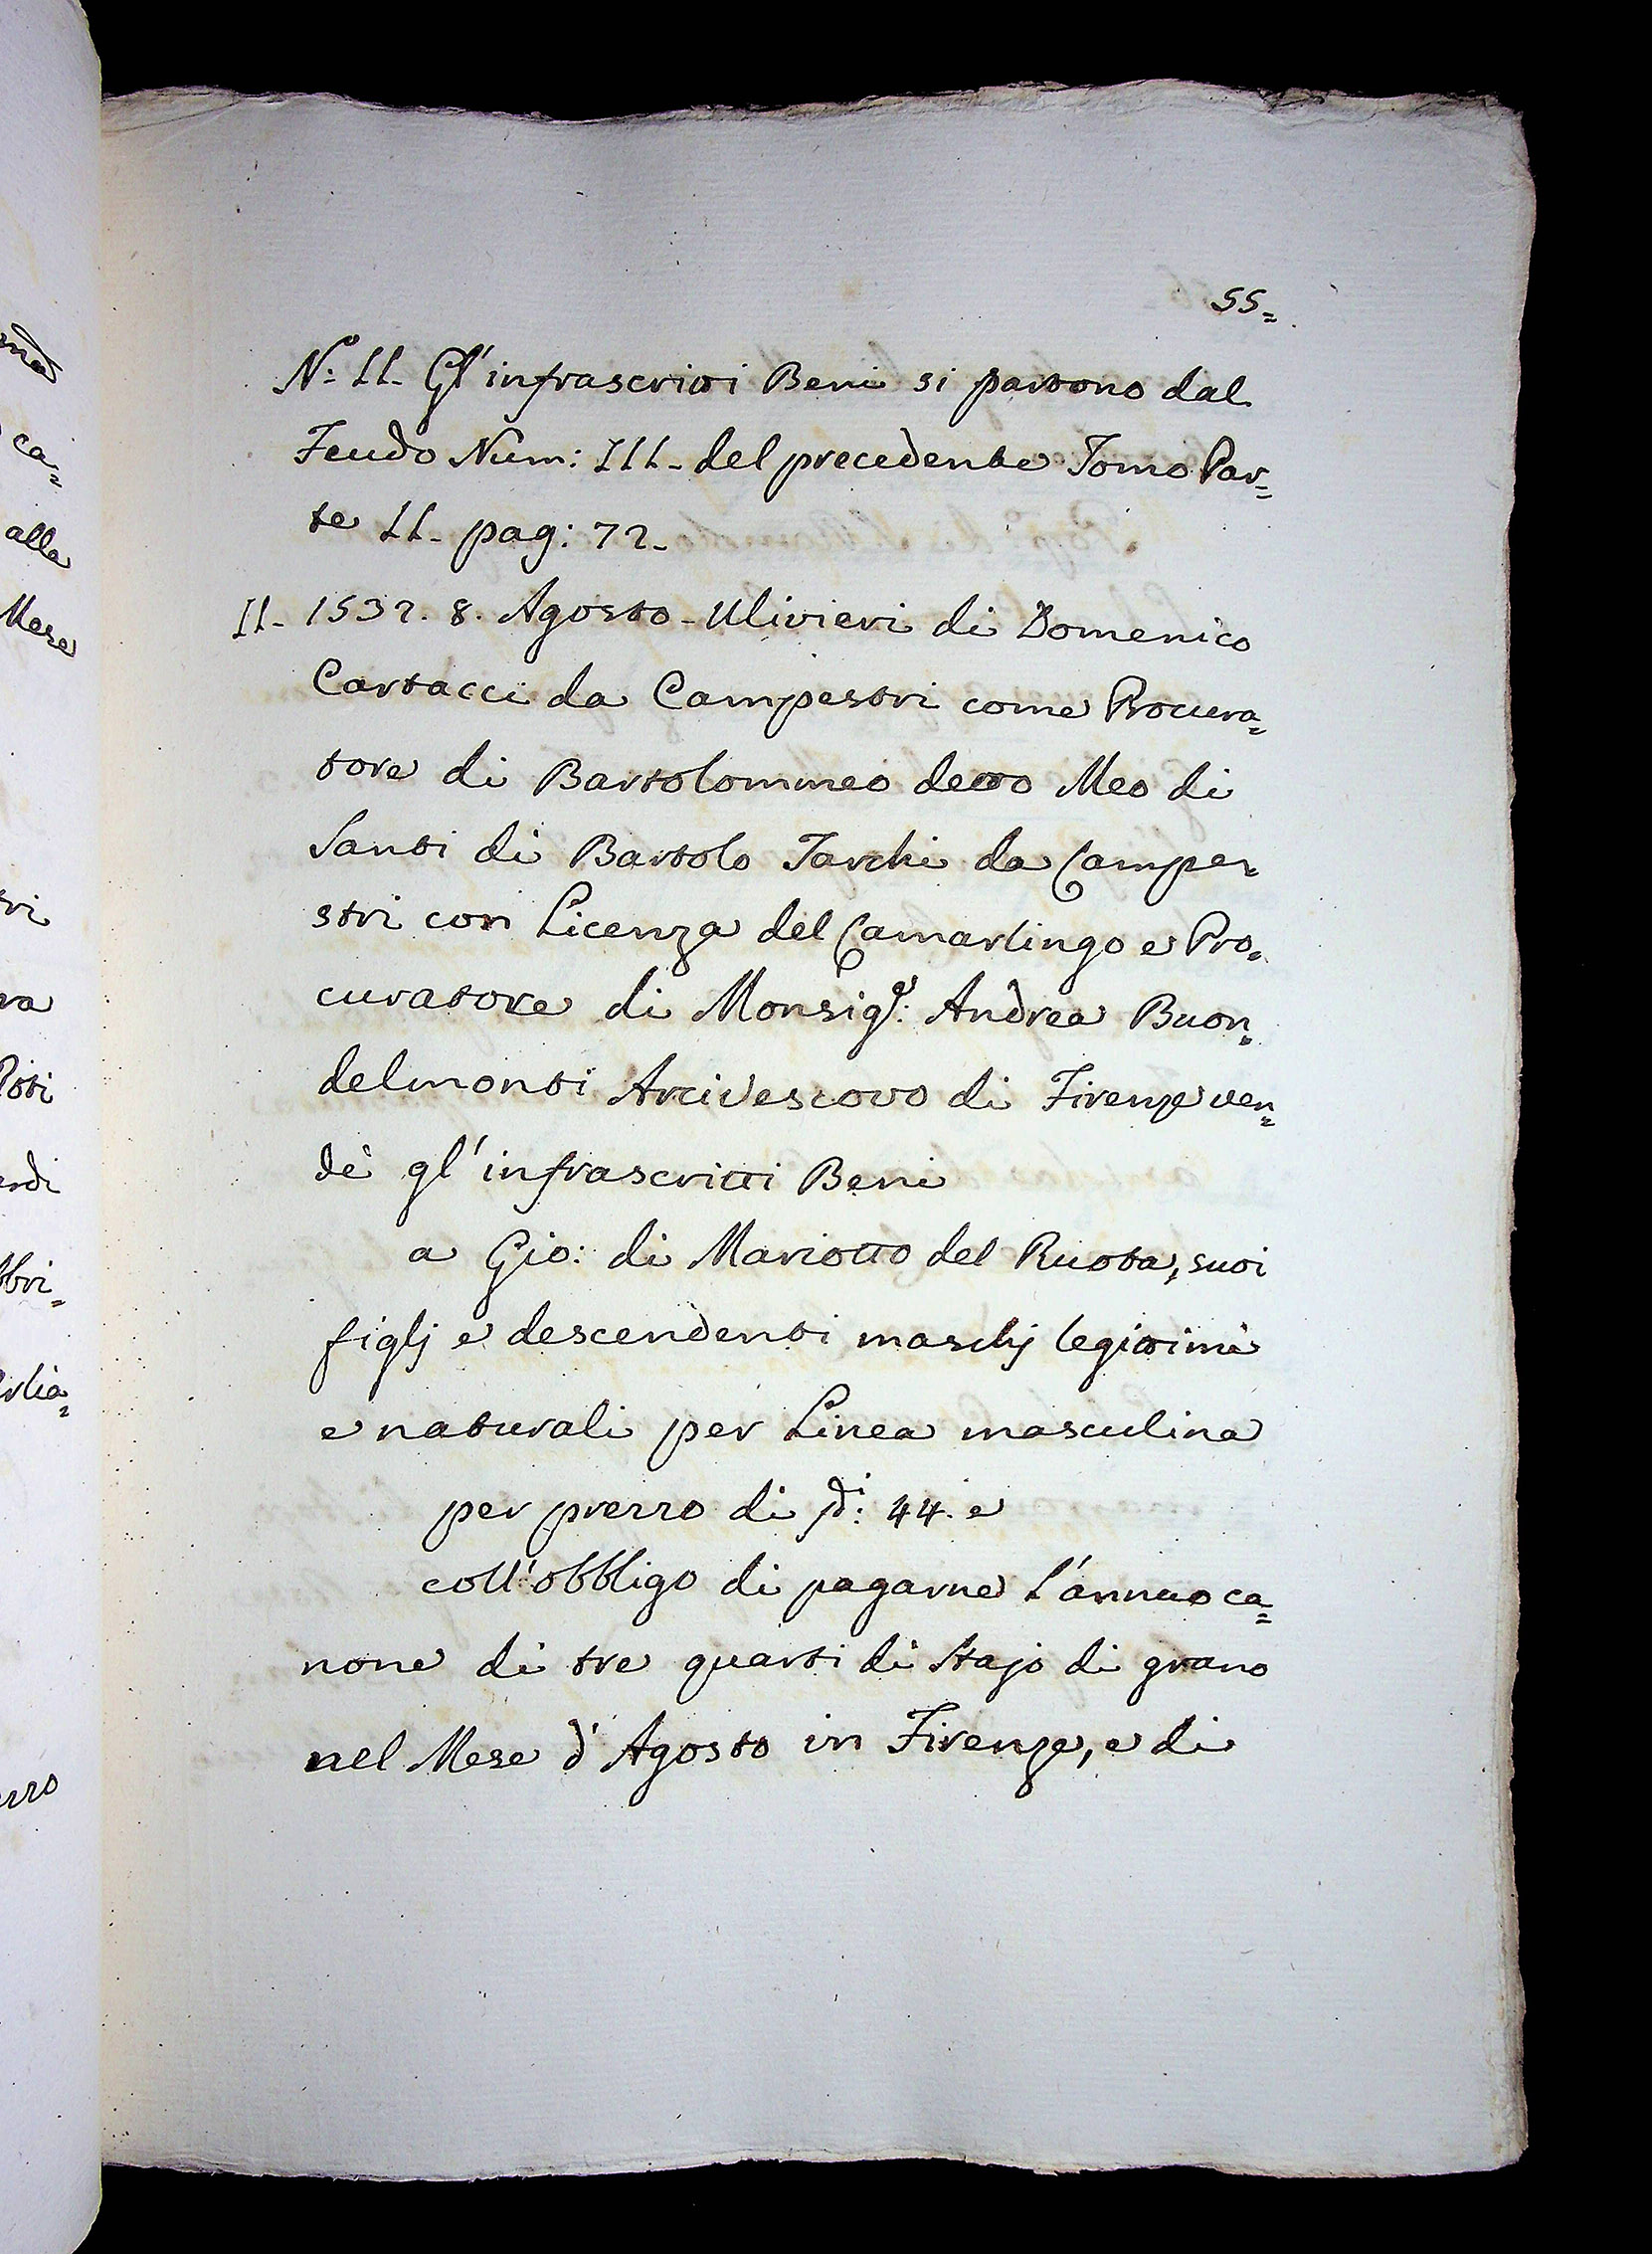 55=
N.º II. Gl'infrascritti Beni si partono dal
Feudo Num: III. del precedente Tomo Par=
te II. pag: 72.
II. 1532. 8. Agosto. Ulivieri di Domenico
Cartacci da Campestri come Procura=
tore di Bartolommeo detto Meo di
Santi di Bartolo Tarchi da Campe=
stri con Licenza del Camarlingo e Pro=
curatore di Monsig.r: Andrea Buon=
delmonti Arcivescovo di Firenze ven=
dè gl'infrascritti Beni
a Gio: di Mariotto del Ruota, suoi
figlj e descendenti maschj legittimi
e naturali per Linea masculina
per prezzo di 44. e
coll'obbligo di pagarne l'annuo ca=
none di tre quarti di Stajo di grano
nel Mese d'Agosto in Firenze, e di
ca=
alla
Mese